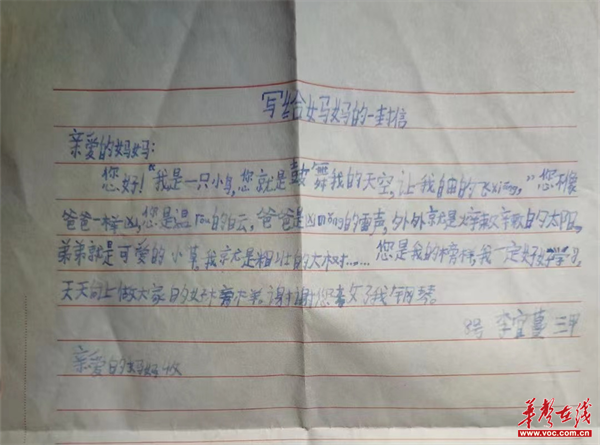 写给妈妈的一封信
亲爱的妈妈:
您好!"我是一只小鸟,您就是鼓舞我的天空,让我自由的飞xiáng,"您不像
爸爸一样凶,您是温rou的白云,爸爸是凶měng的雷声,外外就是火辣辣的太阳,
弟弟就是可爱的小草,我就是粗壮的大树……您是我的榜样,我一定好好学习,
天天向上做大家的好榜样。谢谢您教了我钢琴。
李宜蔓
亲爱的妈妈收
华声在线
www.voc.com.cn